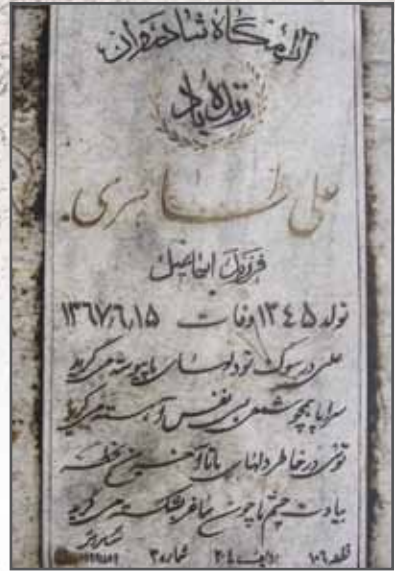 آرامگاه شادروان
زنده یاد
علی طاهری
فرزند اسماعیل
تولد ۱۳۴۵ وفات ۱۳۶۷٫۶٫۱۵
علی در سوک تو دلهای ما پیوسته می‌گرید
سراپا همچو شمعی بی نفس آهسته می‌گرید
توئی در خاطر دلهای ما تا آخرین لحظه
بیادت چشم ما چون ساغر بشکسته می‌گرید
قطعه ۱۰۶ ردیف ۲۰۴ شماره ۳